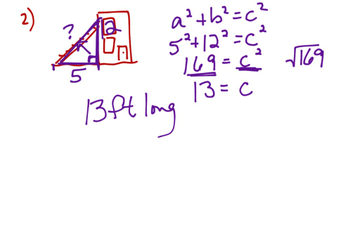 2)
?
12
5
a² + b² = c²
5² + 12² = c²
169 = c²
√169
13 = c
13 ft long